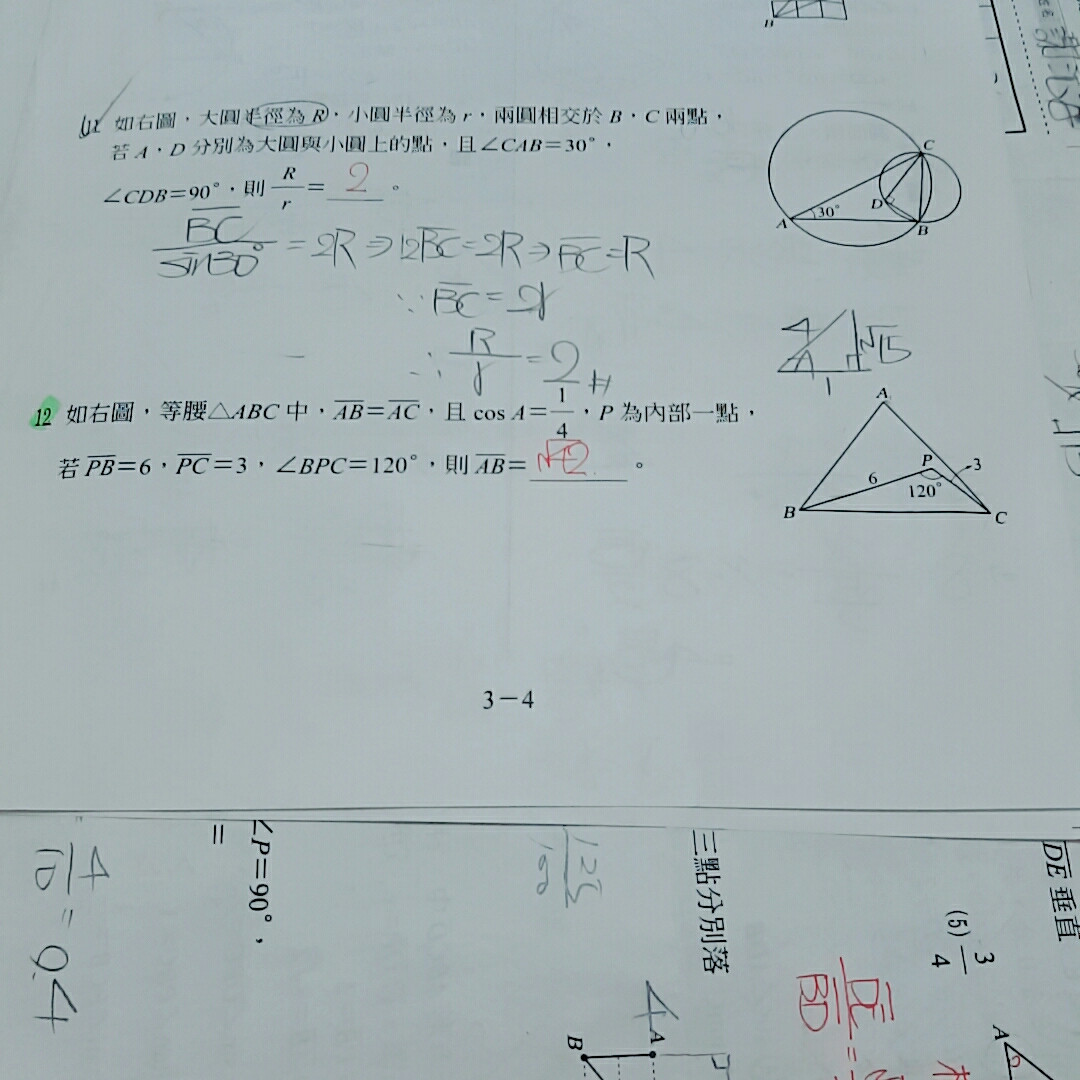 如右圖,大圓半徑為 R,小圓半徑為 r,兩圓相交於 B,C 兩點,
若 A,D 分別為大圓與小圓上的點,且∠CAB=30°,
∠CDB=90°,則 R/r = 2 。
BC/sin30° = 2R ⇒ 2BC = 2R ⇒ BC = R
∵ BC = 2r
∴ R/r = 2
C
D
A
30°
B
4
√15
A
1
12 如右圖,等腰△ABC 中,AB=AC,且 cos A= 1/4,P 為內部一點,
若 PB=6,PC=3,∠BPC=120°,則 AB= √42 。
A
P
3
6
120°
B
C
3-4
4/10 = 0.4
∠P=90°,
=
125/100
三點分別落
DE 垂直
(5) 3/4
DE/BD =
4
A
B
A